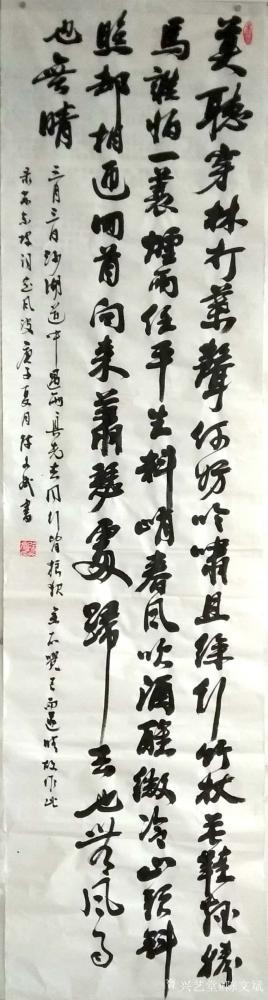 莫聽穿林打葉聲何妨吟嘯且徐行竹杖芒鞋輕勝
馬誰怕一蓑煙雨任平生料峭春風吹酒醒微冷山頭斜
照却相迎回首向来蕭瑟處歸去也無風雨
也無晴
三月三日沙湖道中遇雨具先去同行皆狼狽余不覺已而遂晴故作此
录苏东坡词定风波庚子夏月陈文斌書
兴艺堂 陈文斌